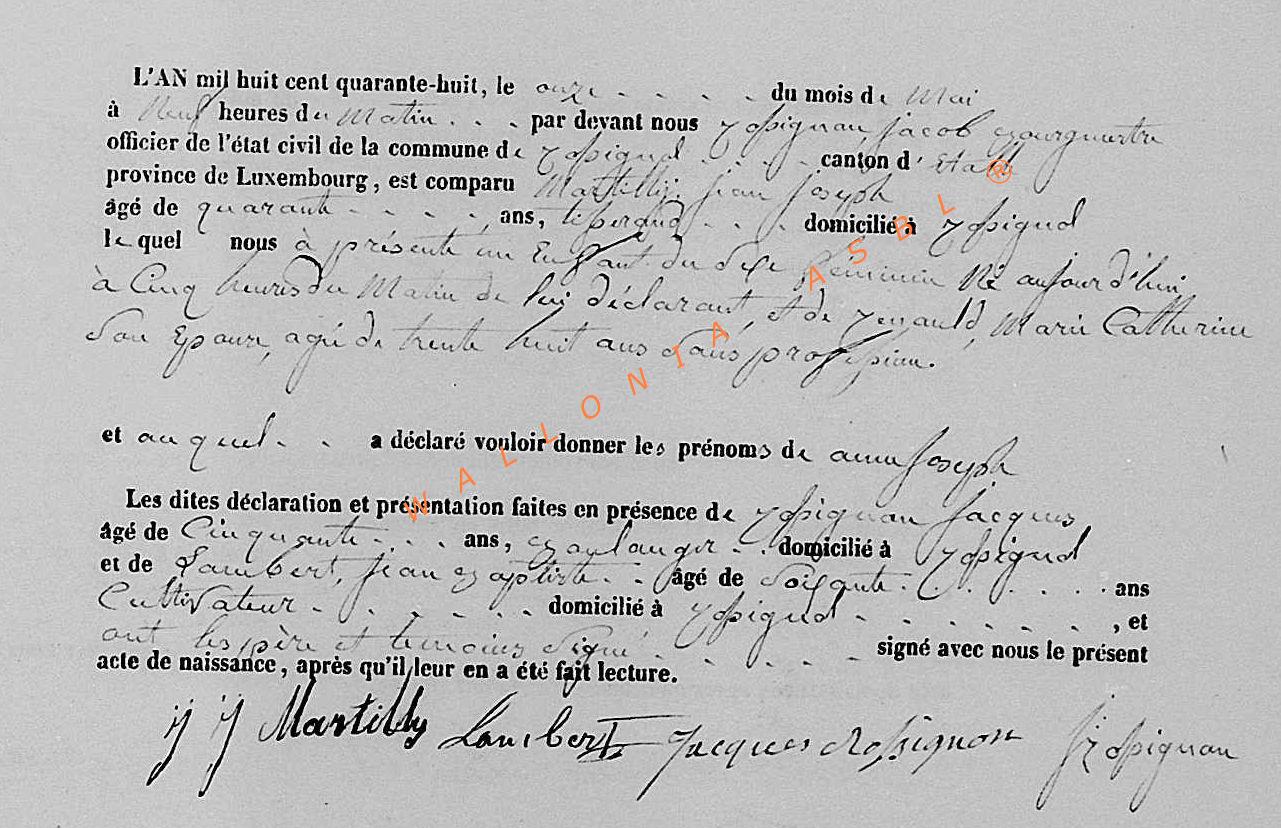 L'AN mil huit cent quarante-huit, le onze du mois de Mai
à Neuf heures du Matin par devant nous Rossignon, Jacob Bourgmestre
officier de l'état civil de la commune de Rossignol canton d'Etalle
province de Luxembourg, est comparu Martilly, Jean Joseph
âgé de quarante ans, domicilié à Rossignol
le quel nous à présenté un Enfant du Sexe féminin Né aujourd'hui
à Cinq heures du Matin de lui déclarant, et de Renauld, Marie Catherine
Son Epouse, agée de trente huit ans Sans profession.
et auquel a déclaré vouloir donner les prénoms de anne Joseph
Les dites déclaration et présentation faites en présence de Rossignon Jacques
âgé de Cinquante ans, Boulanger domicilié à Rossignol
et de Lambert, Jean Baptiste âgé de Soixante ans
Cultivateur domicilié à Rossignol , et
ont les père et temoins Signé signé avec nous le présent
acte de naissance, après qu'il leur en a été fait lecture.
JJ Martilly Lambert Jacques Rossignon J Rossignon
WALLONIA ASBL ®